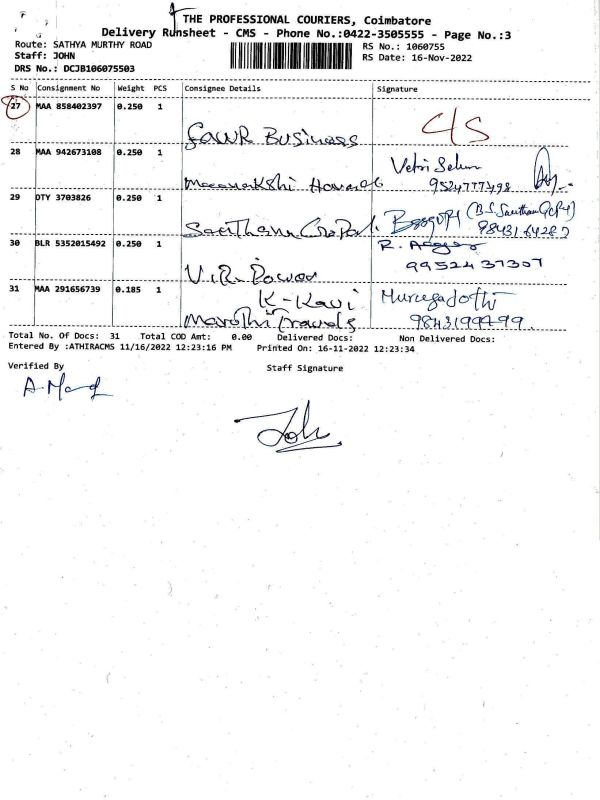 THE PROFESSIONAL COURIERS, Coimbatore
Delivery Runsheet - CMS - Phone No.:0422-3505555 - Page No.:3
Route: SATHYA MURTHY ROAD
RS No.: 1060755
Staff: JOHN
RS Date: 16-Nov-2022
DRS No.: DCJB106075503
S No Consignment No Weight PCS Consignee Details Signature
27 MAA 858402397 0.250 1
Business
28 MAA 942673108 0.250 1 Vetri
9524777498
29 DTY 3703826 0.250 1
30 BLR 5352015492 0.250 1 R.
V.R. Power 9952437307
31 MAA 291656739 0.185 1
K-Kavi
Maruthi Travels
Total No. Of Docs: 31 Total COD Amt: 0.00 Delivered Docs: Non Delivered Docs:
Entered By :ATHIRACMS 11/16/2022 12:23:16 PM Printed On: 16-11-2022 12:23:34
Verified By
Staff Signature
John